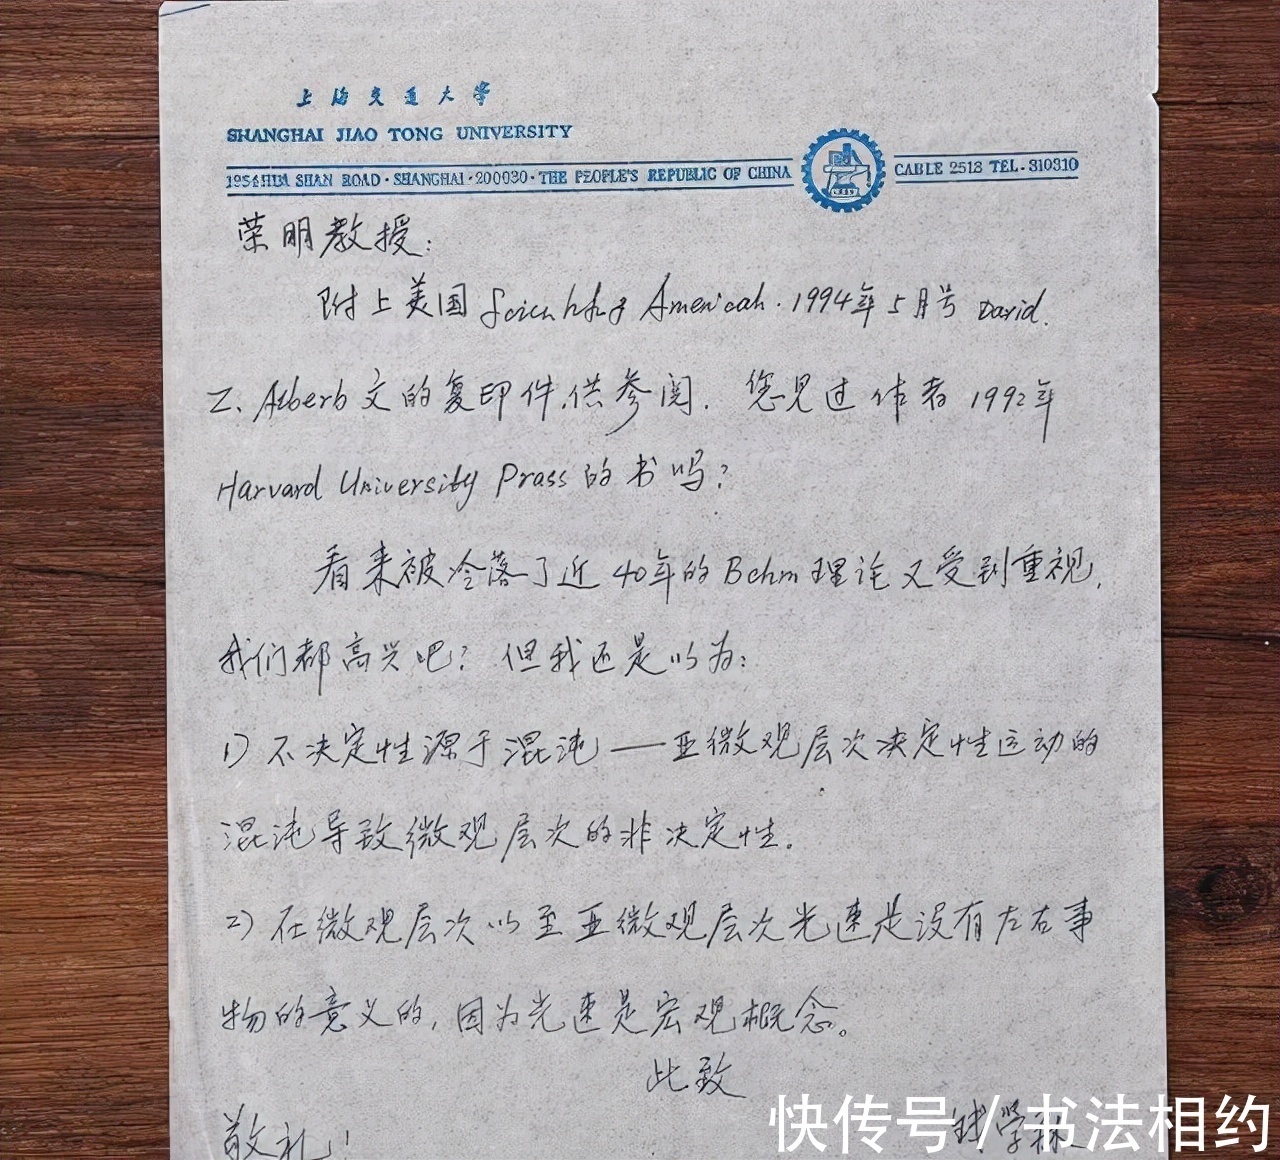 上海交通大学
SHANGHAI JIAO TONG UNIVERSITY
1954 HUA SHAN ROAD · SHANGHAI · 200030 · THE PEOPLE'S REPUBLIC OF CHINA
CABLE 2513 TEL. 310310
荣明教授:
附上美国 Scientific American. 1994年5月号 David.
Z. Alberb 文的复印件,供参阅. 您见过作者1992年
Harvard University Prass 的书吗?
看来被冷落了近40年的Bohm理论又受到重视,
我们都高兴吧? 但我还是以为:
1) 不决定性源于混沌——亚微观层次决定性运动的
混沌导致微观层次的非决定性。
2) 在微观层次以至亚微观层次光速是没有左右事
物的意义的,因为光速是宏观概念。
此致
敬礼!
钱学森
快传号/书法相约